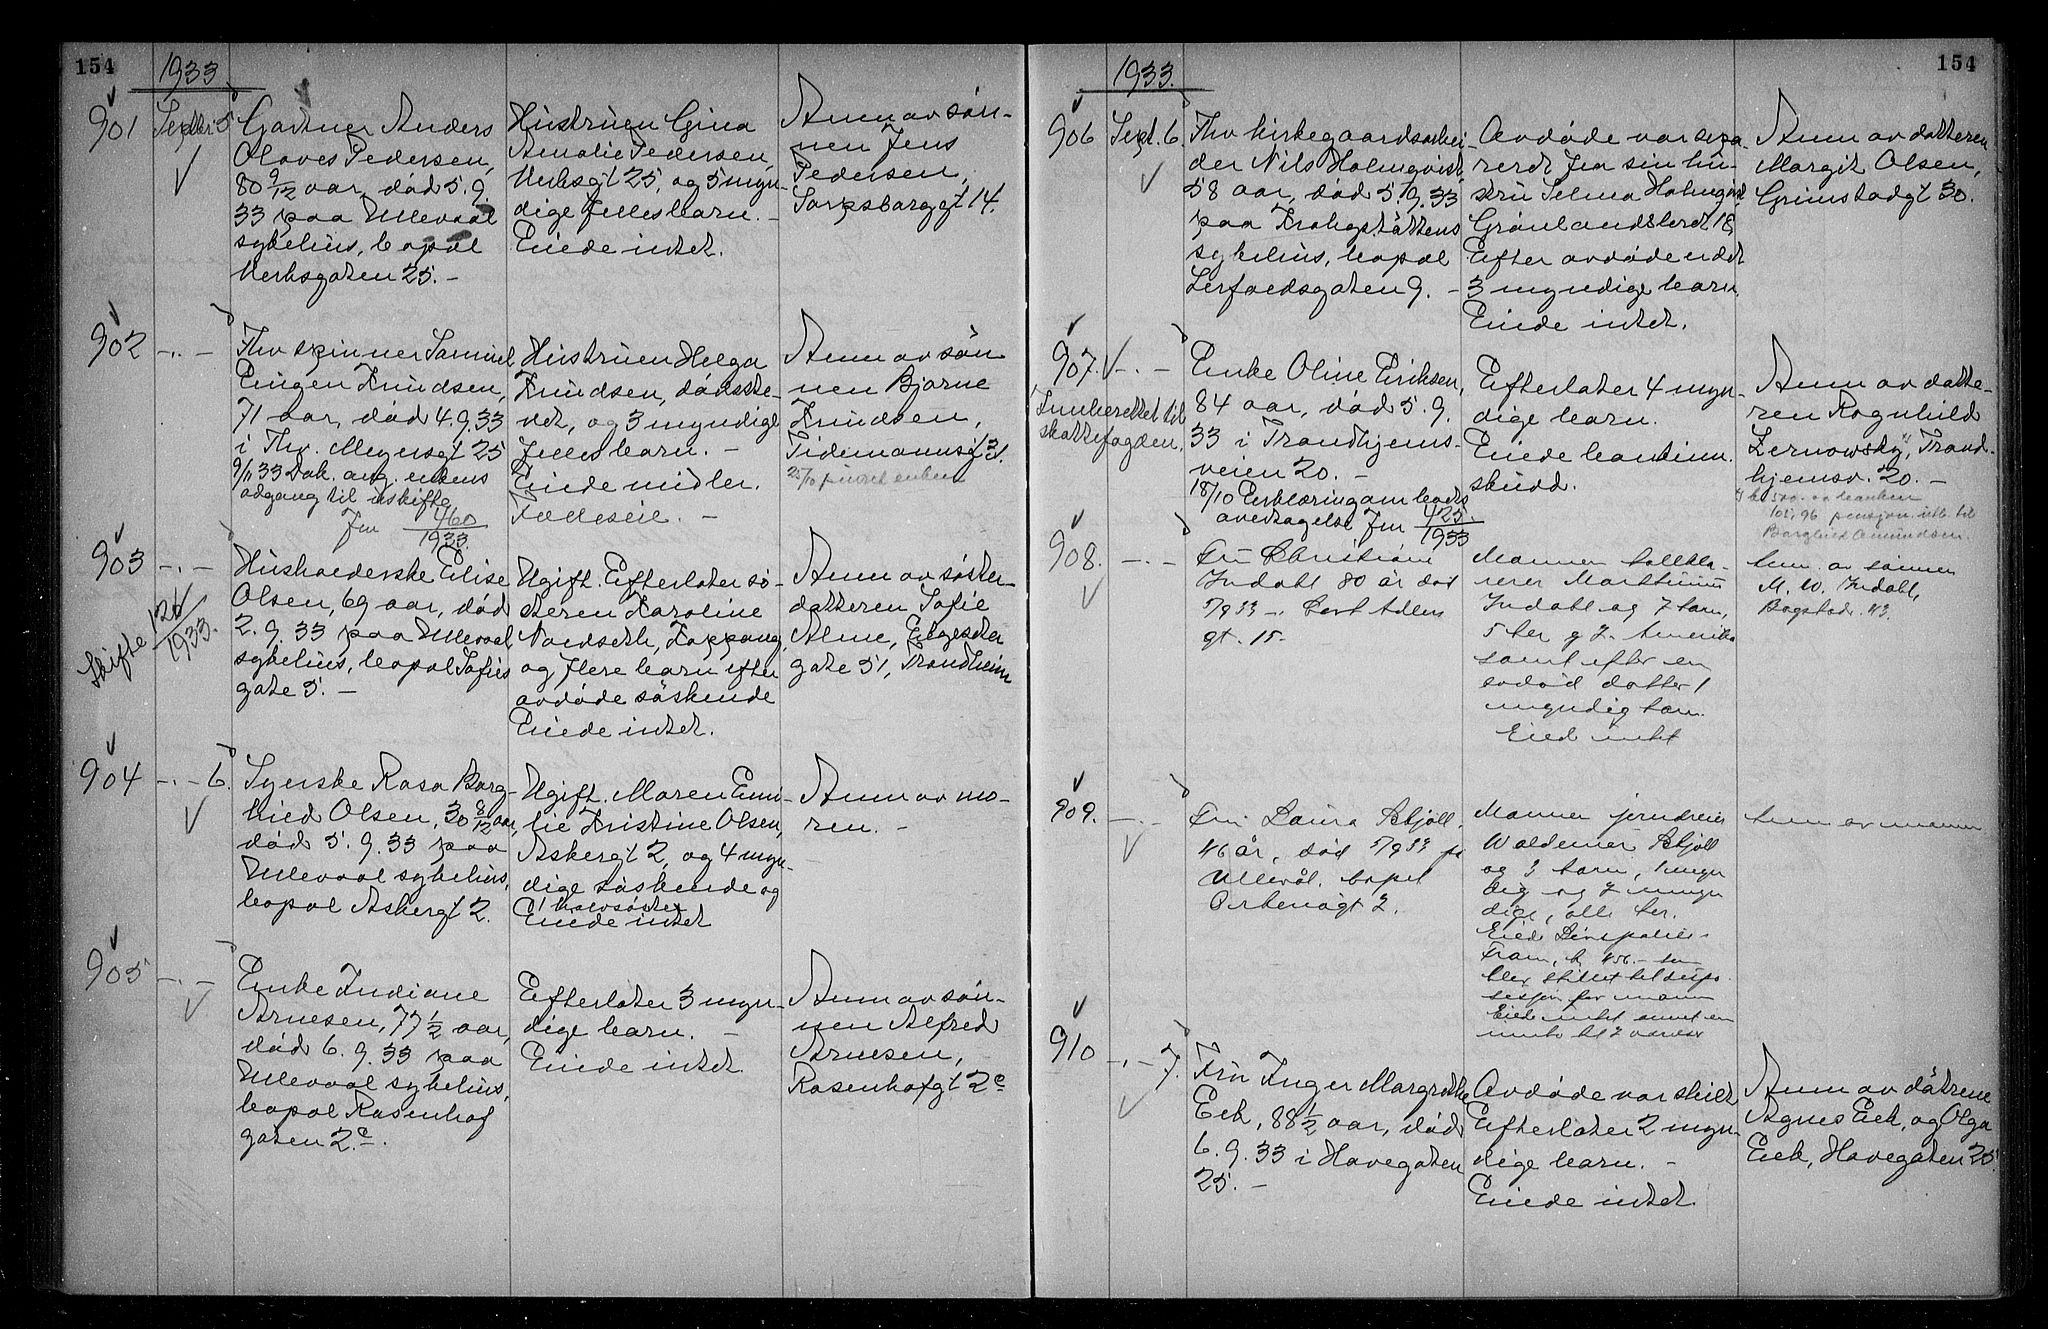 154
1933
901 Septbr. 5
Gartner Anders
Olaves Pedersen,
80 9/12 aar, död 5. 9.
33 paa Ullevaal
sykehus, bopæl
Verksgaten 25. -
Hustruen Gina
Amalie Pedersen,
Verksgt 25, og 5 myn-
dige fellesbarn. -
Eiede intet.
Anm av søn-
nen Jens
Pedersen,
Sarpsborggt 14.
902 -„-
Fhv spinner Samuel
Eugen Knudsen,
71 aar, död 4. 9. 33
i Thv. Meyersgt 25
9/11 33 Dok. ang. enkens
adgang til uskifte
Jnr 460/1933.
Hustruen Helga
Knudsen, dödsste-
det, og 3 myndige
fellesbarn. -
Eiede midler.
Fælleseie. -
Anm av søn
nen Bjarne
Knudsen,
Tidemannsgt 31.
25/10 purret enken
903 -„-
Skifte 121/1933.
Husholderske Elise
Olsen, 69 aar, död
2. 9. 33 paa Ullevaal
sykehus, bopæl Sofies
gate 5. -
Ugift. Efterlater sø-
steren Karoline
Nordseth, Koppang,
og flere barn efter
avdøde søskende
Eiede intet.
Anm av søster-
datteren Sofie
Alme, Elgeseter
gate 51, Trondheim
904 -„- 6.
Syerske Rosa Borg-
hild Olsen, 30 8/12 aar,
död 5. 9. 33 paa
Ullevaal sykehus,
bopæl Askergt 2.
Ugift. Moren Emi-
lie Kristine Olsen,
Askergt 2, og 4 myn-
dige søskende og
1 halvsøster
Eiede intet
Anm av mo-
ren. -
905 -„-
Enke Indiane
Arnesen, 77 1/2 aar,
död 6. 9. 33 paa
Ullevaal sykehus,
bopæl Rosenhof
gaten 2c.
Efterlater 3 myn-
dige barn. -
Eiede intet
Anm av søn-
nen Alfred
Arnesen,
Rosenhofgt 2c
154
1933.
906 Sept. 6.
Fhv kirkegaardsarbei-
der Nils Holmqvist,
58 aar, död 5. 9. 33
paa Krohgstöttens
sykehus, bopæl
Lerfoedsgaten 9. -
Avdøde var sepa-
rerdt fra sin hu-
stru Selma Holmqvist
Grønlandstoret 18,
Efter avdøde er det
3 myndige barn.
Eiede intet.
Anm av datteren
Margit Olsen,
Grimstadgt 30.
907. -„-
Innberettet til
skattefogden.
Enke Oline Eriksen,
84 aar, död 5. 9.
33 i Trondhjems-
veien 20. -
18/10 Erklæring om boets
overtagelse Jnr 425/1933
Efterlater 4 myn-
dige barn.
Eiede contin.
skudd.
Anm av datte-
ren Ragnhild
Zernowsky, Trond-
hjemsv. 20. -
kr 500.- av banken
105,96 pensjon utb. til
Borghild Amundsen.
908. -„-
Fru Christiane
Indahl 80 år död
5/9 33 -. Cort Adlers
gt. 15.
Mannen
Marthinius
Indahl og 7 barn,
5 her og 2 i Amerika
samt efter en
avdöd datter 1
myndig barn.
Eied intet
Anm av sönnen
M. W. Indahl,
Bogstadv. 43.
909. -„-
Fru Laura Skjöll,
46 år, död 5/9 33 på
Ullevål, bopel
Orknögt 2.
Mannen jerndreier
Waldemar Skjöll
og 3 barn, 1 myn
dig og 2 umyn
dige, alle her.
Eied Livspolise
Fram, kr 456.- som
blev stillet til dispo
sisjon for mannen
Eied intet annet enn
innbo til 2 værelser
Anm av mannen
910 -„- 7.
Fru Inger Margrethe
Eek, 88 1/2 aar, död
6. 9. 33 i Havegaten
25. -
Avdøde var skilt
Efterlater 2 myn-
dige barn. -
Eiede intet
Anm av døtrene
Agnes Eek, og Olga
Eek, Havegaten 25